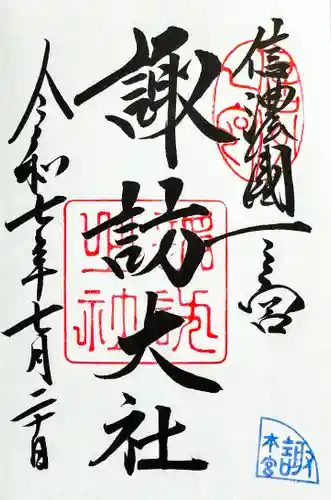 信濃國一之宮
諏訪大社
令和七年七月二十日
諏
本宮